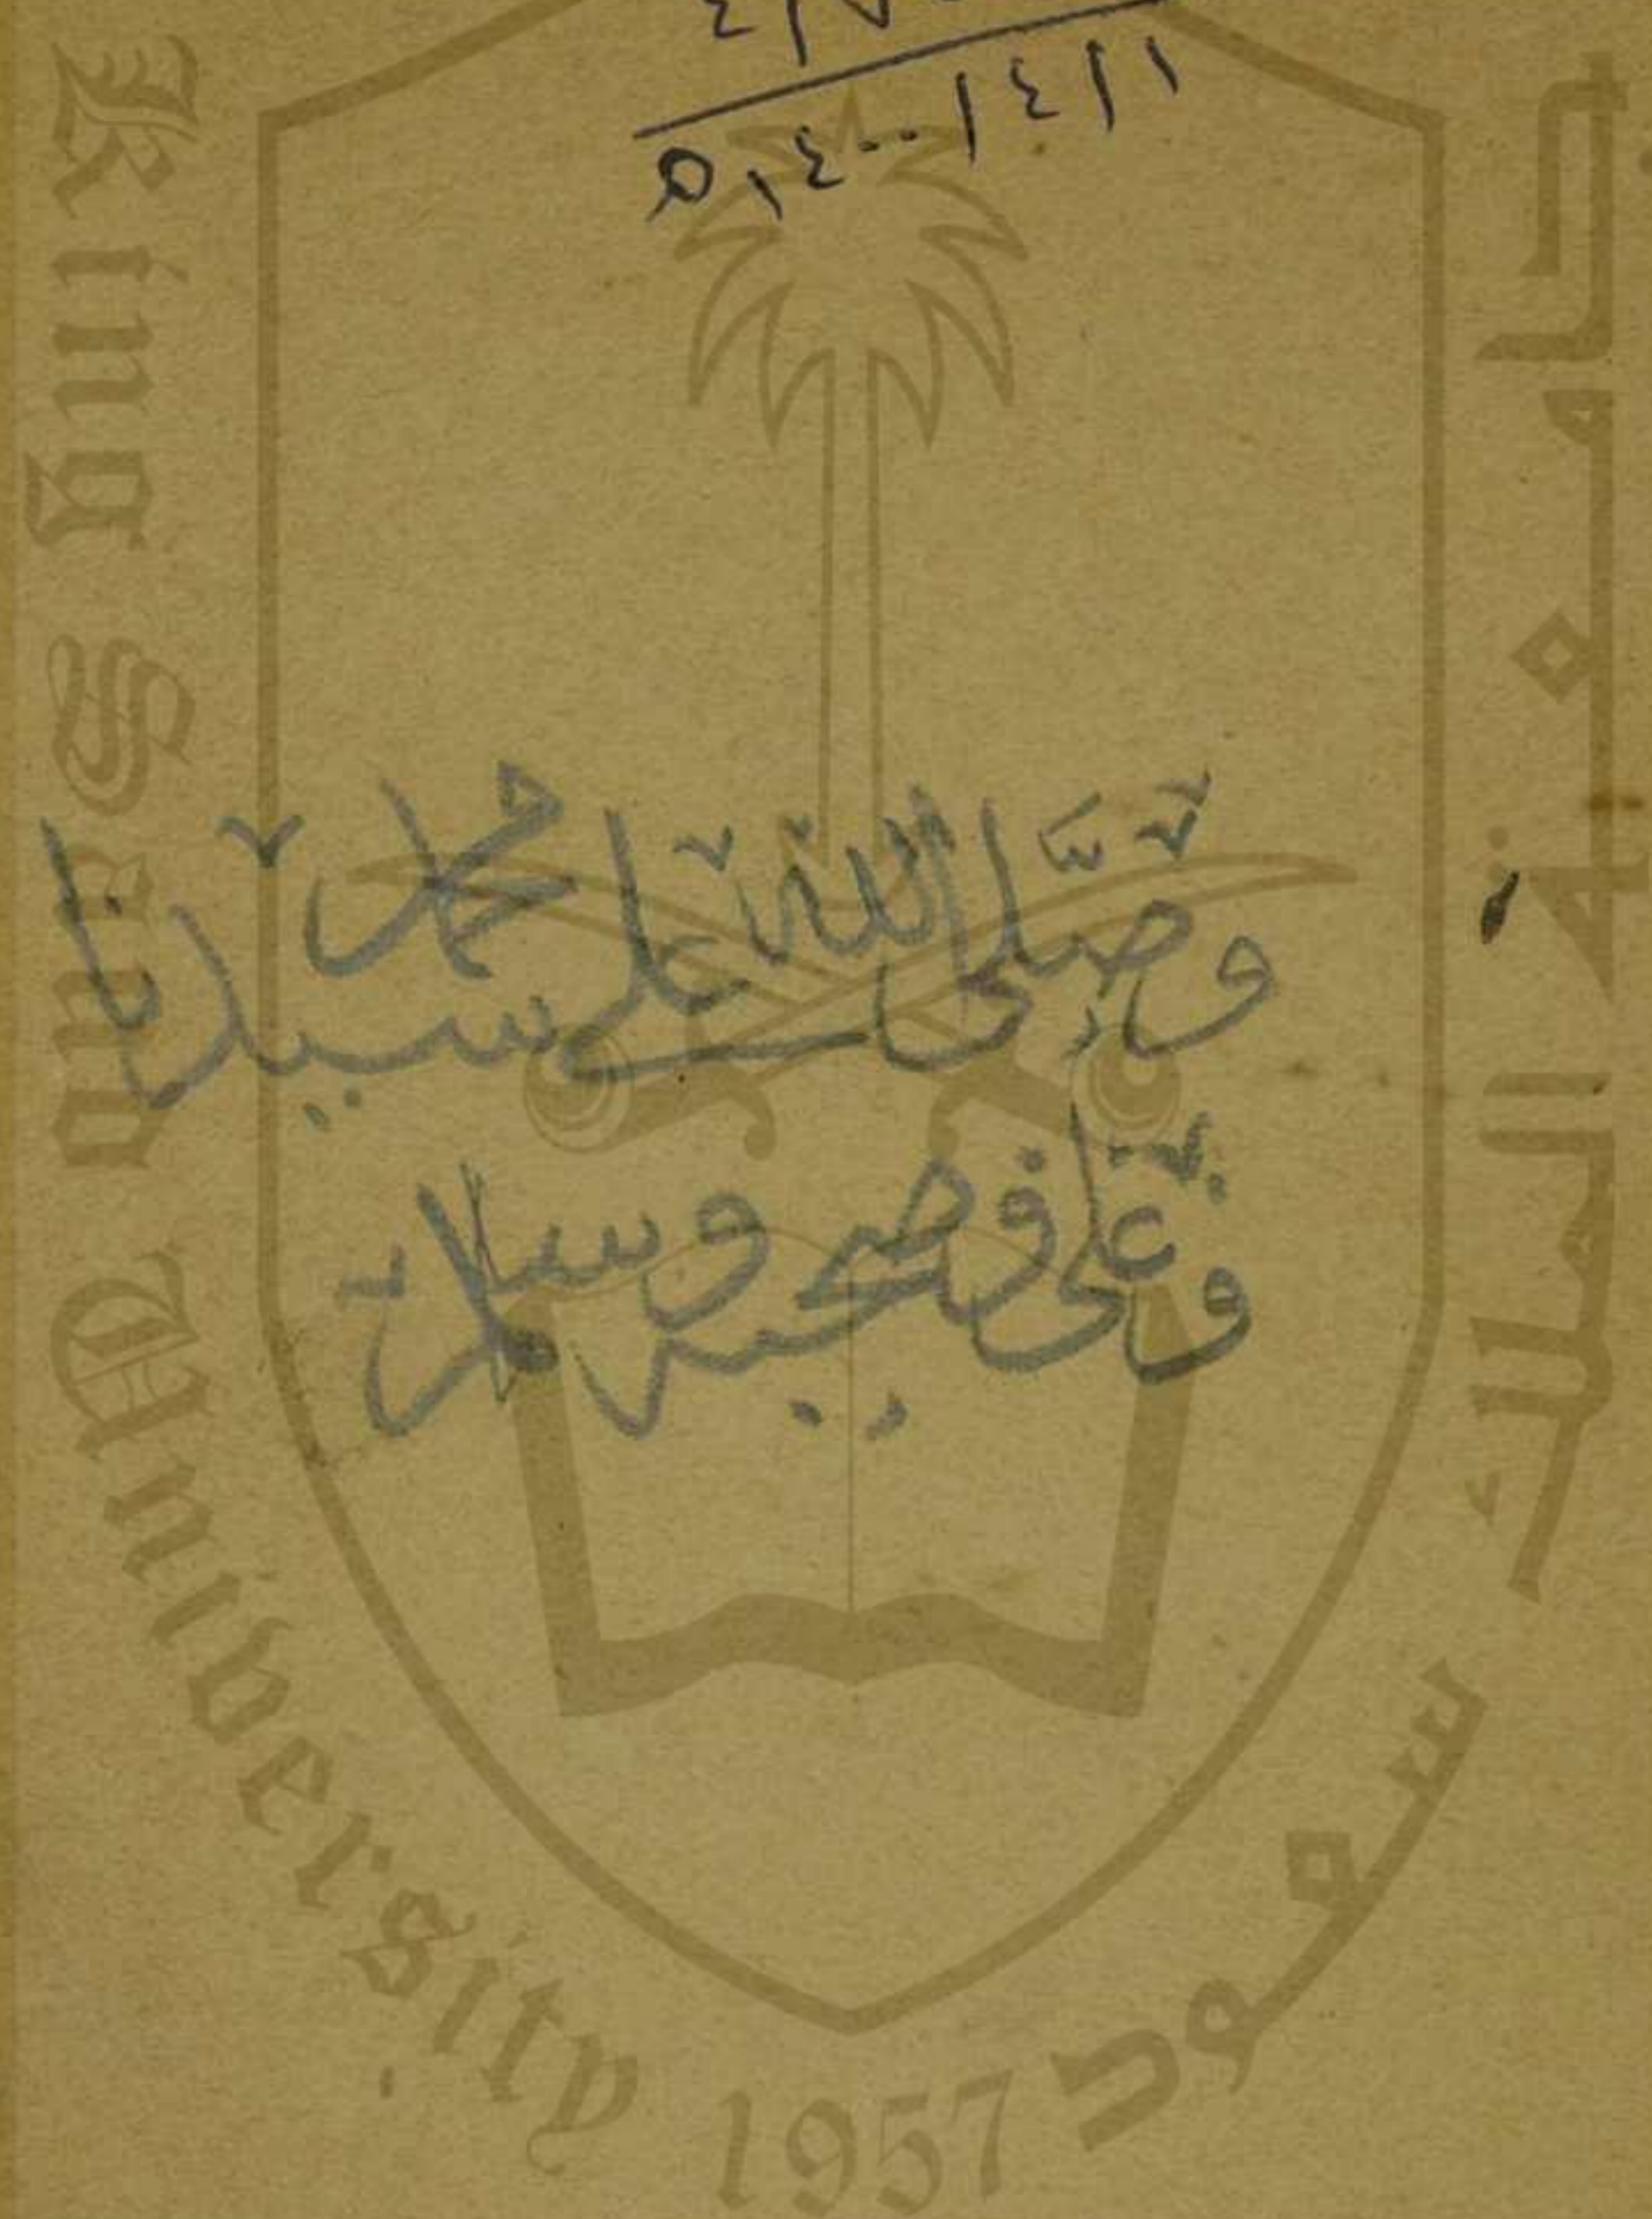 ١/٤/١٤٠٠ه
وصلى الله على سيدنا محمد
وعلى وصحبه وسلم
King Saud University 1957
جامعة الملك سعود